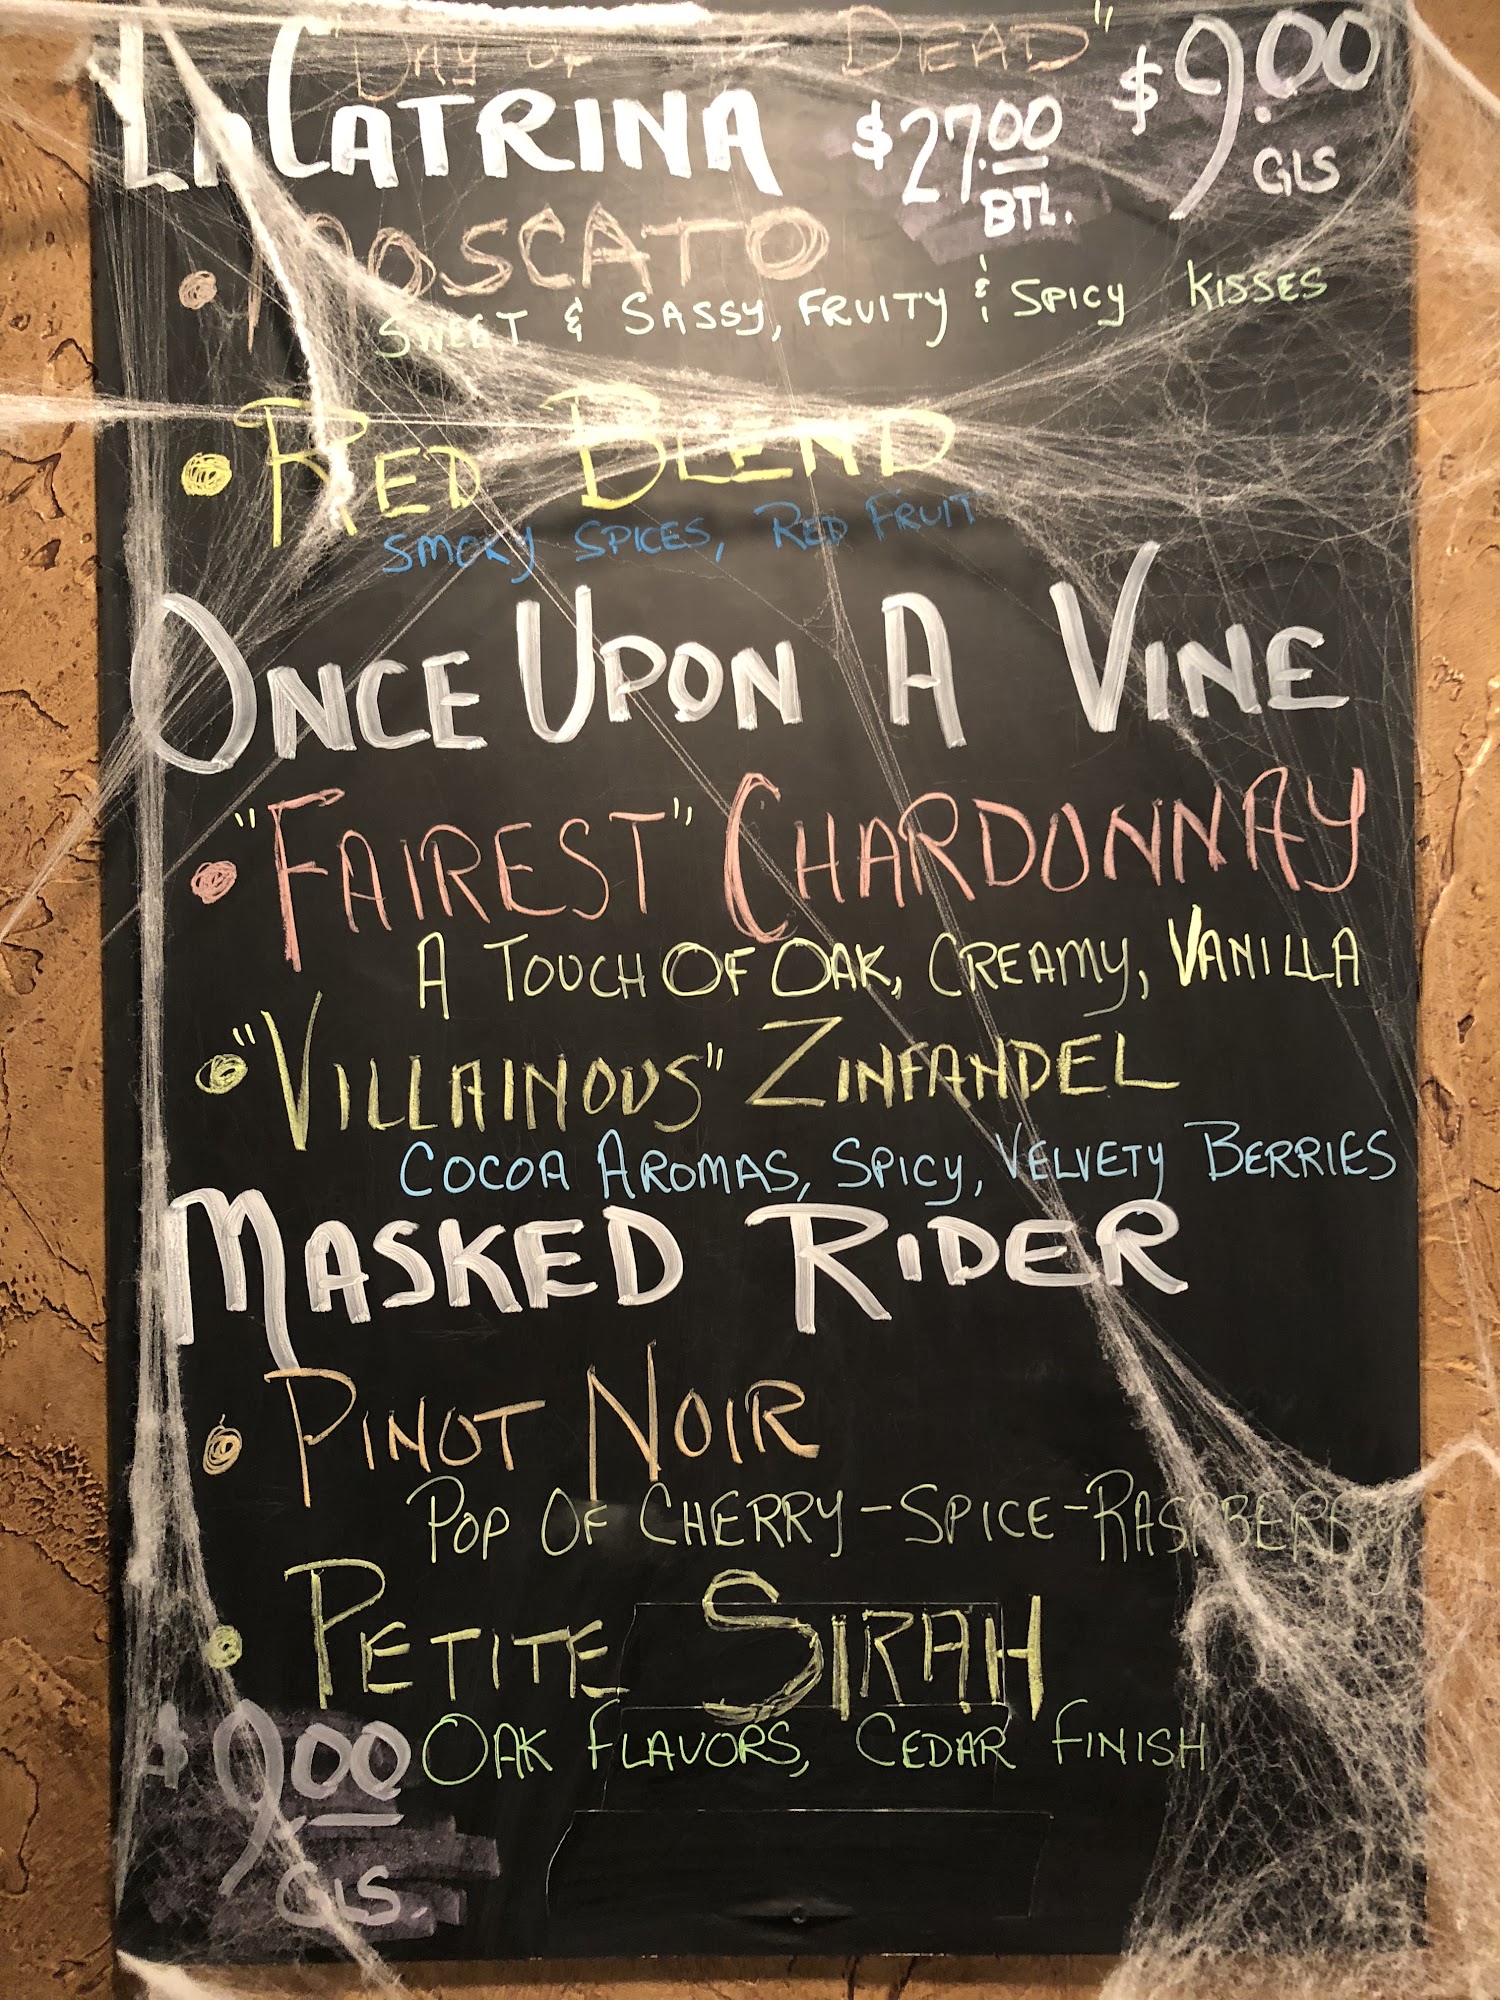 "DAY OF THE DEAD"
LA CATRINA $27.00 BTL. $9.00 GLS
• MOSCATO
SWEET & SASSY, FRUITY & SPICY KISSES
• RED BLEND
SMOKY SPICES, RED FRUIT
ONCE UPON A VINE
• "FAIREST" CHARDONNAY
A TOUCH OF OAK, CREAMY, VANILLA
• "VILLAINOUS" ZINFANDEL
COCOA AROMAS, SPICY, VELVETY BERRIES
MASKED RIDER
• PINOT NOIR
POP OF CHERRY-SPICE-RASPBERRY
• PETITE SIRAH
OAK FLAVORS, CEDAR FINISH
$9.00
GLS.